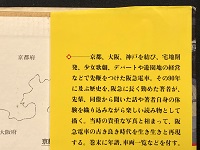 ◇――京都、大阪、神戸を結び、宅地開
発、少女歌劇、デパートや遊園地の経営
などで先鞭をつけた阪急電車。その90年
に及ぶ歴史を、阪急に長く勤めた著者が、
先輩、同僚から聞いた話や著者自身の体
験を織り込みながら楽しい読み物として
描く。当時の貴重な写真と相まって、阪
急電車の古き良き時代を生き生きと再現
する。巻末に年譜、車両一覧などを付す。
京都府
大阪府